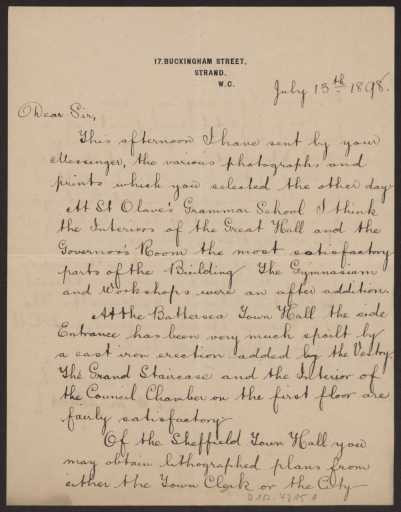 17, BUCKINGHAM STREET,
STRAND,
W.C.
July 13th 1898.
Dear Sir,
This afternoon I have sent by your
Messenger, the various photographs and
prints which you selected the other day
At St Olave's Grammar School I think
the Interiors of the Great Hall and the
Governor's Room the most satisfactory
parts of the Building The Gymnasium
and Workshops were an after addition.
At the Battersea Town Hall the side
Entrance has been very much spoilt by
a cast iron erection added by the Vestry
The Grand Staircase and the Interior of
the Council Chamber on the first floor are
fairly satisfactory
Of the Sheffield Town Hall you
may obtain lithographed plans from
either the Town Clerk or the City